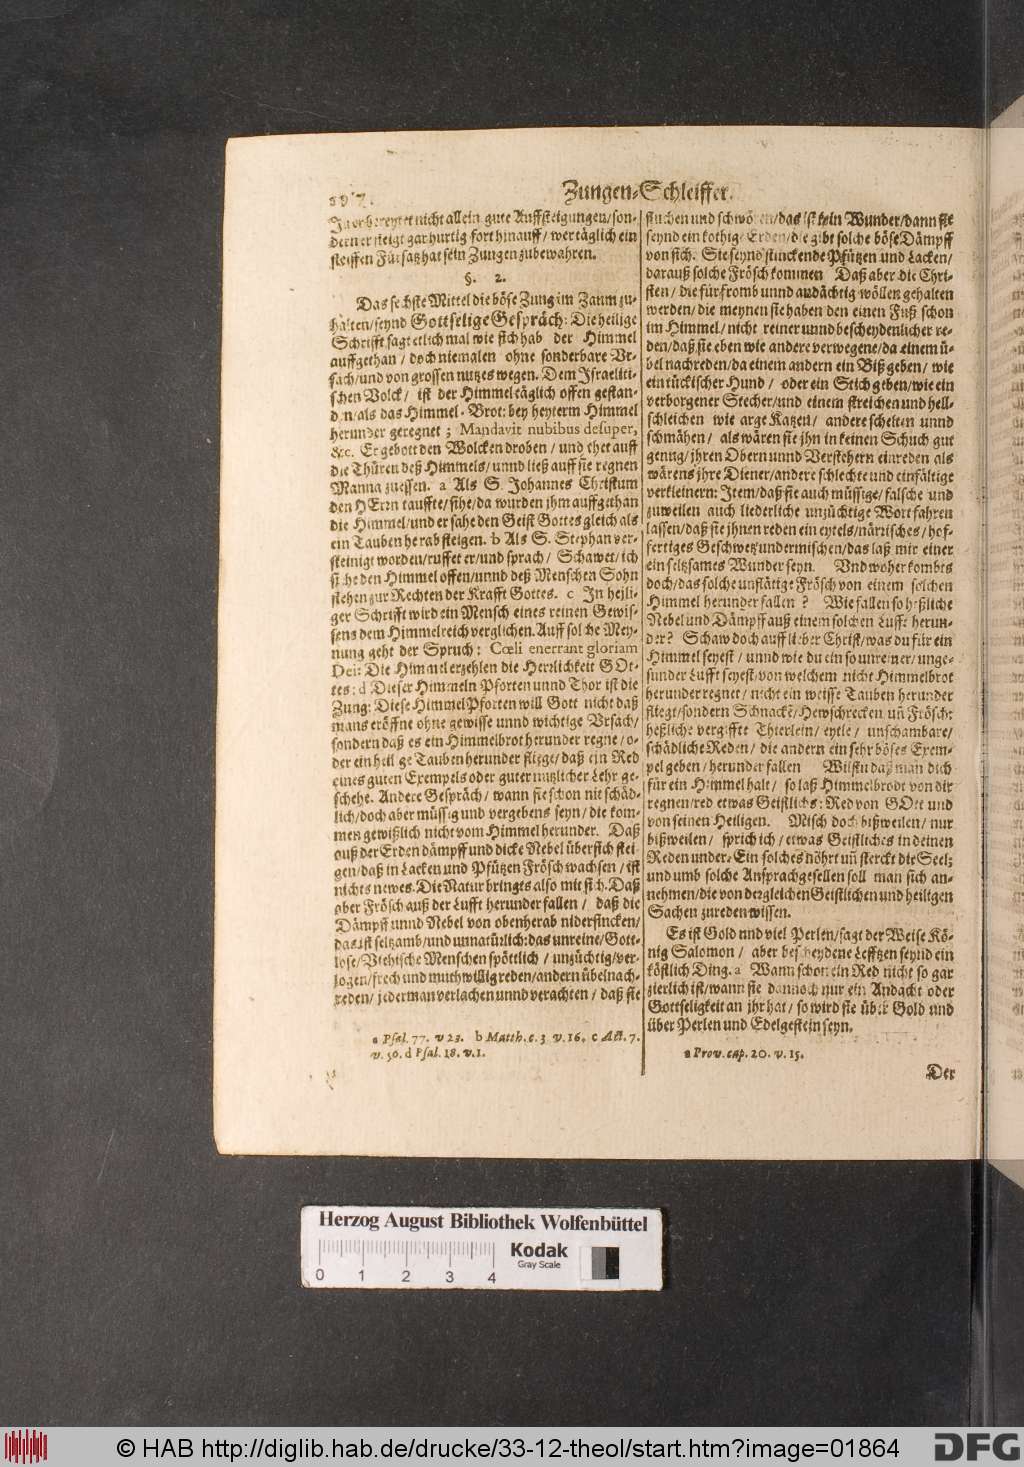 Zungen-Schleiffer.
nicht allein gute Auffsteigungen/son-
dern er steigt gar hurtig fort hinauff/wer täglich ein
steiffen Fürsatz hat sein Zungen zubewahren.
§. 2.
Das sechste Mittel die böse Zung im Zaum zu-
halten/seynd Gottselige Gespräch: Die heilige
Schrifft sagt etlich mal wie sich hab der Himmel
auffgethan / doch niemalen ohne sonderbare Vr-
sach/und von grossen nutzes wegen. Dem Israeliti-
schen Volck/ ist der Himmel täglich offen gestan-
den/als das Himmel-Brot: bey heyterm Himmel
herunder geregnet; Mandavit nubibus desuper,
&c. Er gebott den Wolcken droben / und thet auff
die Thüren deß Himmels/unnd ließ auff sie regnen
Manna zuessen. a Als S. Johannes Christum
den HErrn tauffte/sihe/da wurden jhm auffgethan
die Himmel/und er sahe den Geist Gottes gleich als
ein Tauben herab steigen. b Als S. Stephan ver-
steinigt worden/ruffet er/und sprach/ Schawet/ich
sihe den Himmel offen/unnd deß Menschen Sohn
stehen zur Rechten der Krafft Gottes. c In heili-
ger Schrifft wird ein Mensch eines reinen Gewis-
sens dem Himmelreich verglichen. Auff solche Mey-
nung geht der Spruch: Cœli enerrant gloriam
Dei: Die Himmel erzehlen die Herrlichkeit GOt-
tes: d Dieser Himmeln Pforten unnd Thor ist die
Zung: Diese Himmel Pforten will Gott nicht daß
mans eröffne ohne gewisse unnd wichtige Vrsach/
sondern daß es ein Himmelbrot herunder regne/o-
der ein heilige Tauben herunder fliege/daß ein Red
eines guten Exempels oder guter nutzlicher Lehr ge-
schehe. Andere Gespräch/ wann sie schon nie schäd-
lich/doch aber müssig und vergebens seyn/die kom-
men gewißlich nicht vom Himmel herunder. Daß
auß der Erden dämpff und dicke Nebel übersich stei-
gen/daß in Lacken und Pfützen Frösch wachsen / ist
nichts newes. Die Natur bringts also mit sich. Daß
aber Frösch auß der Lufft herunder fallen / daß die
Dämpff unnd Nebel von obenherab nidersincken/
das ist seltzamb/und unnatürlich: das unreine/Gott-
lose/Viehische Menschen spöttlich / unzüchtig/ver-
logen/frech und muthwillig reden/andern übelnach-
reden/ jederman verlachen unnd verachten / daß sie
a Psal. 77. v 23. b Matth. c. 3 v. 16. c Act. 7.
v. 56. d Psal. 18. v. 1.
fluchen und schwören/das ist kein Wunder/dann sie
seynd ein kothig/ Erden/die gibt solche böse Dämpff
von sich. Sie seynd stinckende Pfützen und Lacken/
darauß solche Frösch kommen Daß aber die Chri-
sten / die für fromb unnd andächtig wöllen gehalten
werden/die meynen sie haben den einen Fuß schon
im Himmel/ nicht reiner unnd bescheydenlicher re-
den/daß sie eben wie andere verwegene/da einem ü-
bel nachreden/da einem andern ein Biß geben/ wie
ein tückischer Hund / oder ein Stich geben/wie ein
verborgener Stecher/und einem streichen und hell-
schleichen wie arge Katzen/ andere schelten unnd
schmähen/ als wären sie jhn in keinen Schuch gut
genug/jhren Obern unnd Verstehern einreden als
wärens jhre Diener/andere schlechte und einfältige
verkleinern: Item/daß sie auch müssige/ falsche und
zuweilen auch liederliche unzüchtige Wort fahren
lassen/daß sie jhnen reden ein eytels/närrisches/hof-
fertiges Geschwetz undermischen/das laß mir einer
ein seltzsames Wunder seyn. Und woher kombts
doch/das solche unflätige Frösch von einem solchen
Himmel herunder fallen ? Wie fallen so heßliche
Nebel und Dämpff auß einem solchen Lufft herun-
der? Schaw doch auff lieber Christ/was du für ein
Himmel seyest / unnd wie du ein so unreiner/unge-
sunder Lufft seyest/von welchem nicht Himmelbrot
herunder regnet/ nicht ein weisse Tauben herunder
fliegt/sondern Schnackē/Hewschrecken uñ Frösch:
heßliche vergiffte Thierlein/ eytle/ unschambare/
schädliche Reden/ die andern ein sehr böses Exem-
pel geben/ herunder fallen Wilstu daß man dich
für ein Himmel halt/ so laß Himmelbrodt von dir
regnen/red etwas Geistlichs: Red von GOtt und
von seinen Heiligen. Misch doch bißweilen/ nur
bißweilen/ sprich ich/etwas Geistliches in deinen
Reden under. Ein solches nöhrt uñ sterckt die Seel;
und umb solche Ansprachgesellen soll man sich an-
nehmen/die von dergleichen Geistlichen und heiligen
Sachen zureden wissen.
Es ist Gold und viel Perlen/sagt der Weise Kö-
nig Salomon / aber bescheydene Lefftzen seynd ein
köstlich Ding. a Wann schon ein Red nicht so gar
zierlich ist/wann sie dannoch nur ein Andacht oder
Gottseligkeit an jhr hat/ so wird sie über Gold und
über Perlen und Edelgestein seyn.
a Prov. cap. 20. v. 15.
Der
Herzog August Bibliothek Wolfenbüttel
0 1 2 3 4
Kodak
Gray Scale
© HAB http://diglib.hab.de/drucke/33-12-theol/start.htm?image=01864
DFG